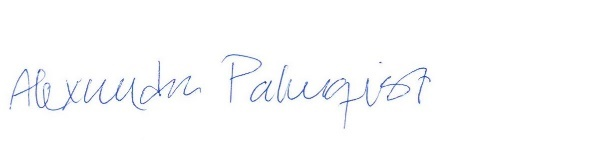 Alexandra Palmqvist